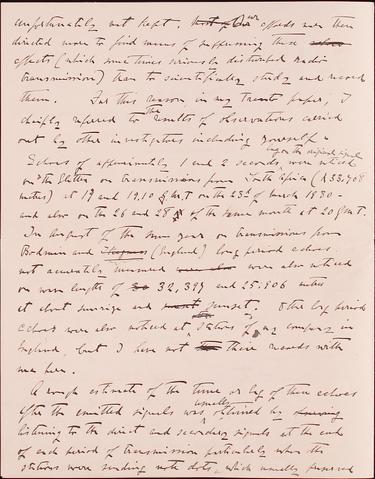 unfortunately not kept. Our efforts were then
directed more to find means of suppressing these
effects (which sometimes seriously distorted radio
transmission) than to scientifically study and record
them. For this reason, in my Trento paper, I
chiefly referred to the results of observations carried
out by other investigators including yourself.
Echoes of approximately 1 and 2 seconds were noticed
on the Elettra on transmissions from South Africa (λ 33,708
metres) at 19 and 19.10 G.M.T on the 23d of March 1930 -
and also on the 26 and 28 of the same month at 20 G.M.T.
In August of the same year on transmissions from
Bodmin and (England) long period echoes.
not accurately measured were also were also noticed
on wave lengths of 32,397 and 25.906 metres
at about sunrise and sunset. Other long period
echoes were also noticed at stations of my company in
England, but I have not their records with
me here.
A rough estimate of the time or lag of these echoes
after the emitted signals was usually obtained by
listening to the direct and secondary signals at the end
of each period of transmission particularly when the
stations were sending dots, which usually preceded